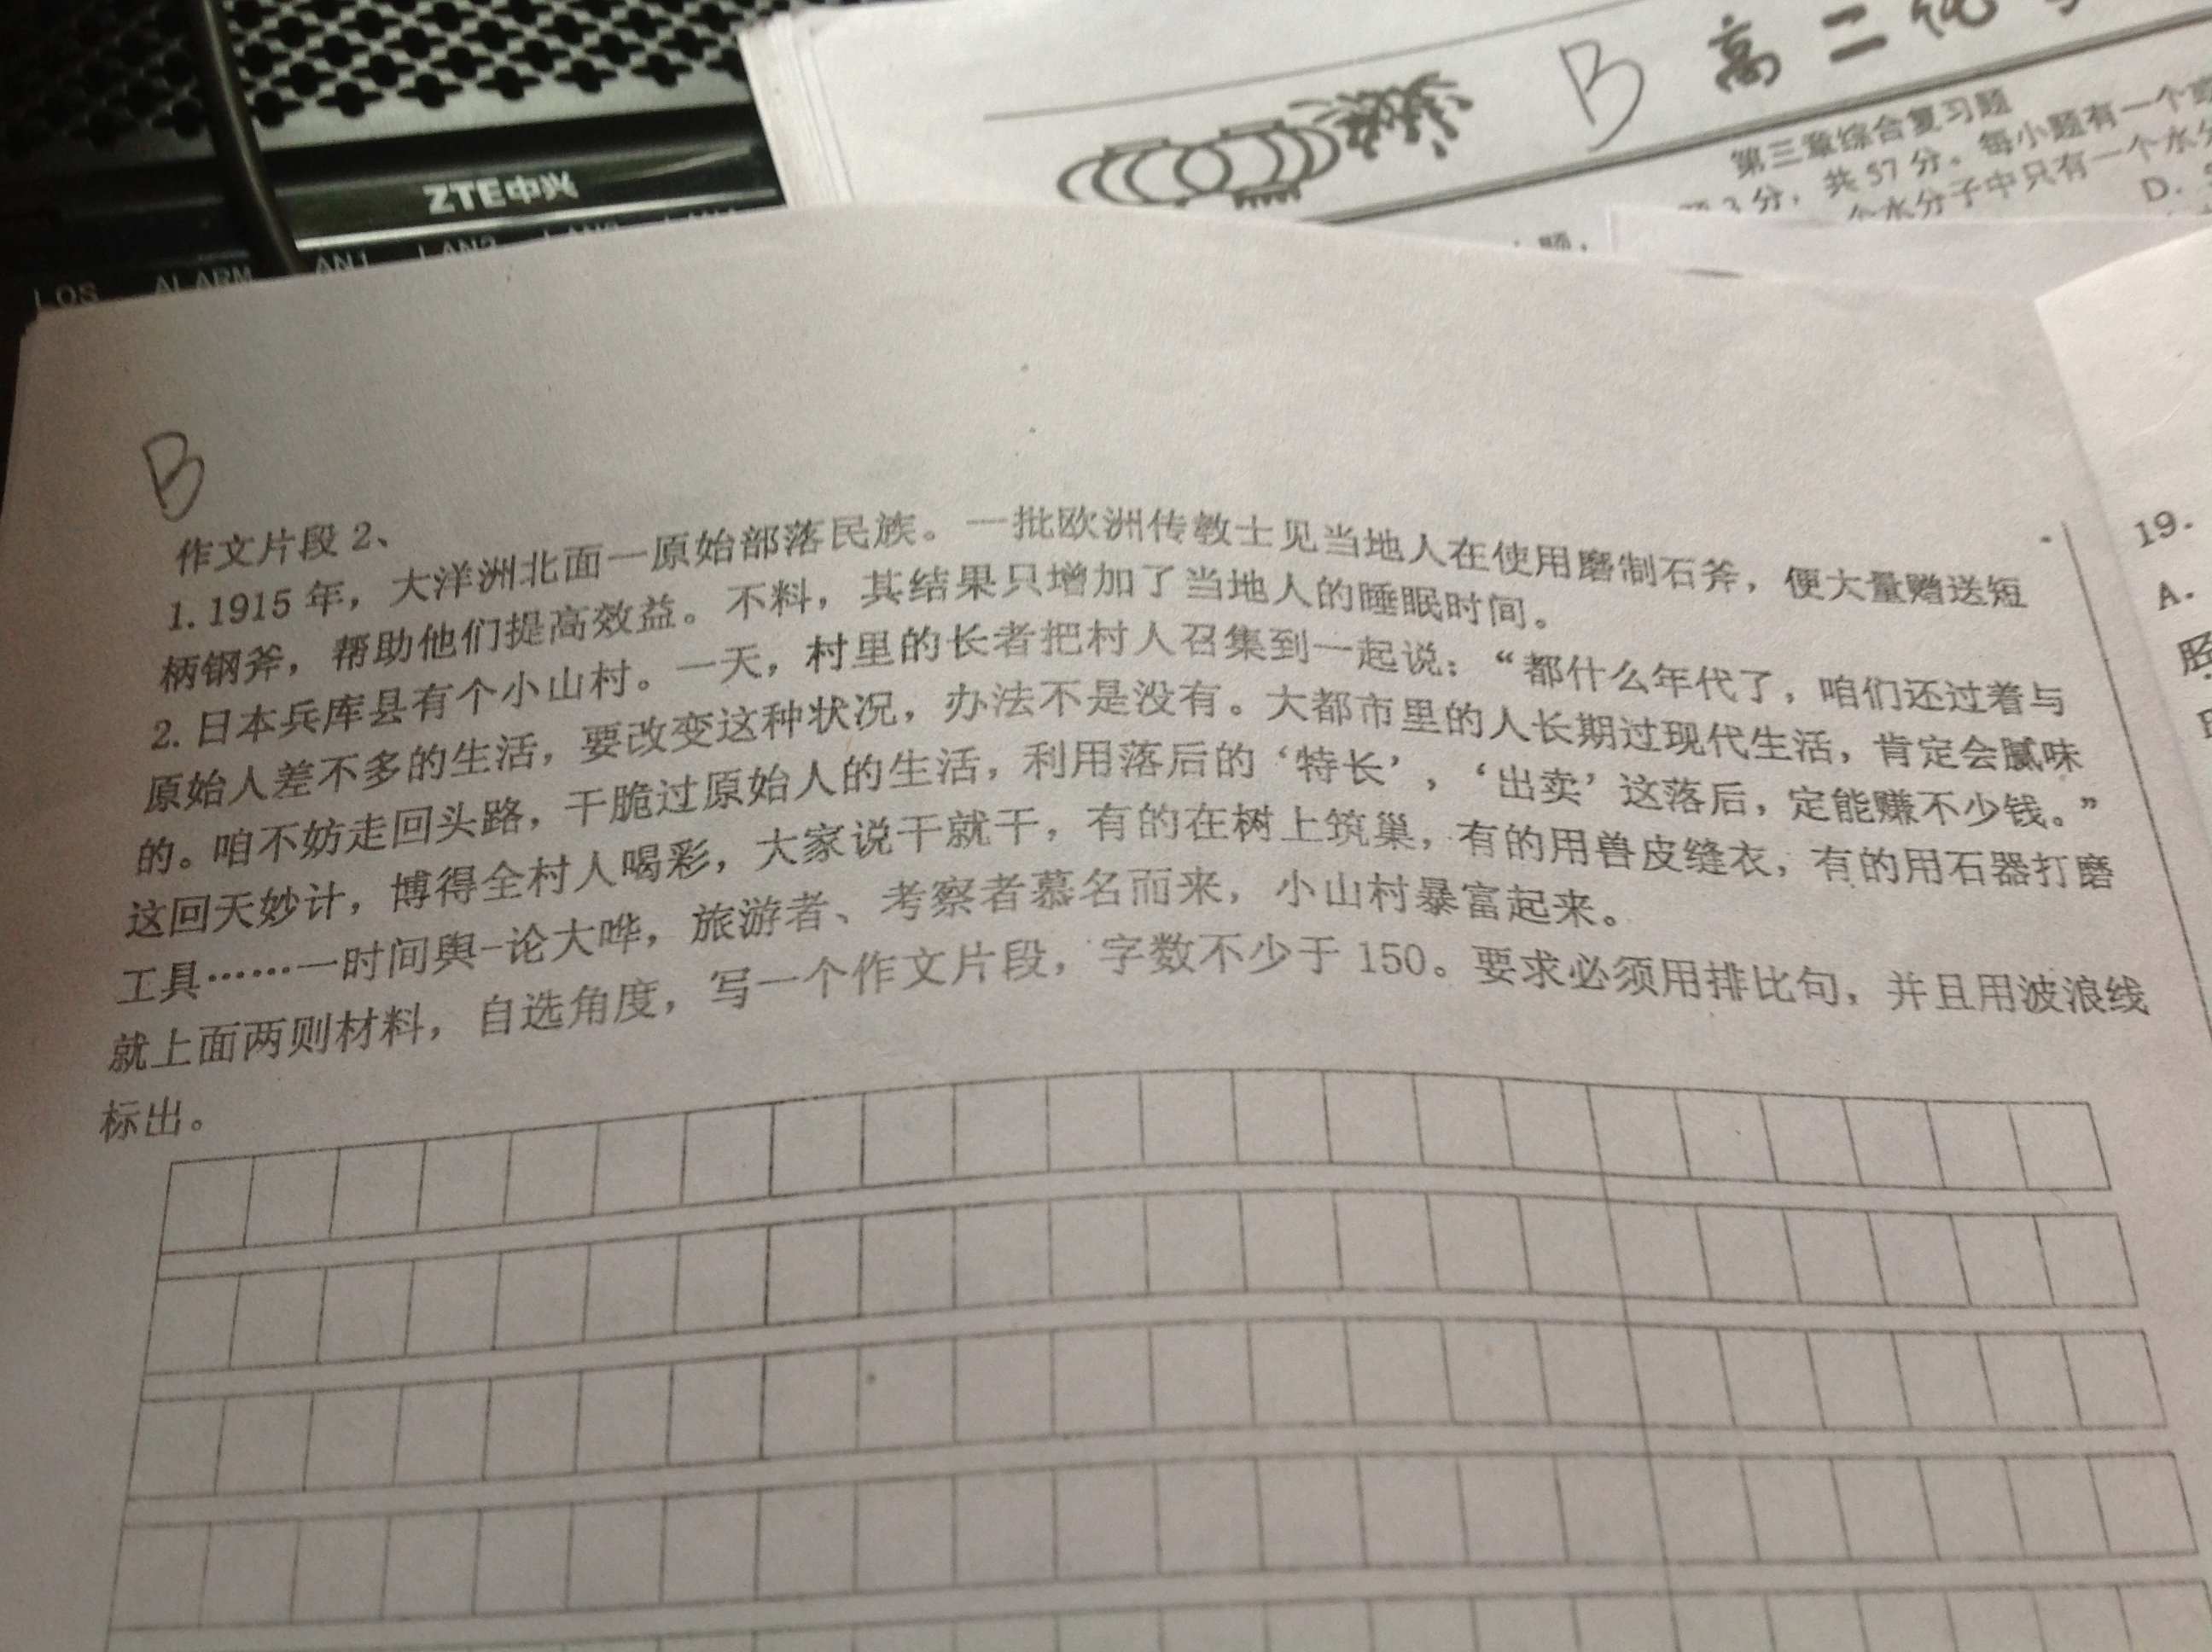 B 高二化
第三章综合复习题
3分，共57分。每小题有一个或
个水分子中只有一个水分
D.
ZTE中兴
LOS ALARM LAN1 LAN2
B
作文片段2、
1.1915年，大洋洲北面一原始部落民族。一批欧洲传教士见当地人在使用磨制石斧，便大量赠送短
柄钢斧，帮助他们提高效益。不料，其结果只增加了当地人的睡眠时间。
2.日本兵库县有个小山村。一天，村里的长者把村人召集到一起说：“都什么年代了，咱们还过着与
原始人差不多的生活，要改变这种状况，办法不是没有。大都市里的人长期过现代生活，肯定会腻味
的。咱不妨走回头路，干脆过原始人的生活，利用落后的‘特长’，‘出卖’这落后，定能赚不少钱。”
这回天妙计，博得全村人喝彩，大家说干就干，有的在树上筑巢，有的用兽皮缝衣，有的用石器打磨
工具……一时间舆-论大哗，旅游者、考察者慕名而来，小山村暴富起来。
就上面两则材料，自选角度，写一个作文片段，字数不少于150。要求必须用排比句，并且用波浪线
标出。
19.
A.